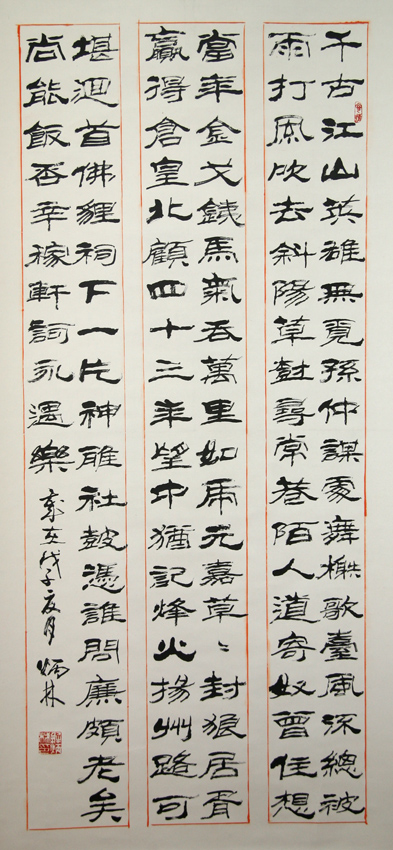 千古江山英雄無覓孫仲謀處舞榭歌臺風流總被
雨打風吹去斜陽草樹尋常巷陌人道寄奴曾住想
當年金戈鐵馬氣吞萬里如虎元嘉草〻封狼居胥
贏得倉皇北顧四十三年望中猶記烽火揚州路可
堪迴首佛貍祠下一片神鴉社鼓憑誰問廉頗老矣
尚能飯否辛稼軒詞永遇樂 歲在戊子夏月 炳林